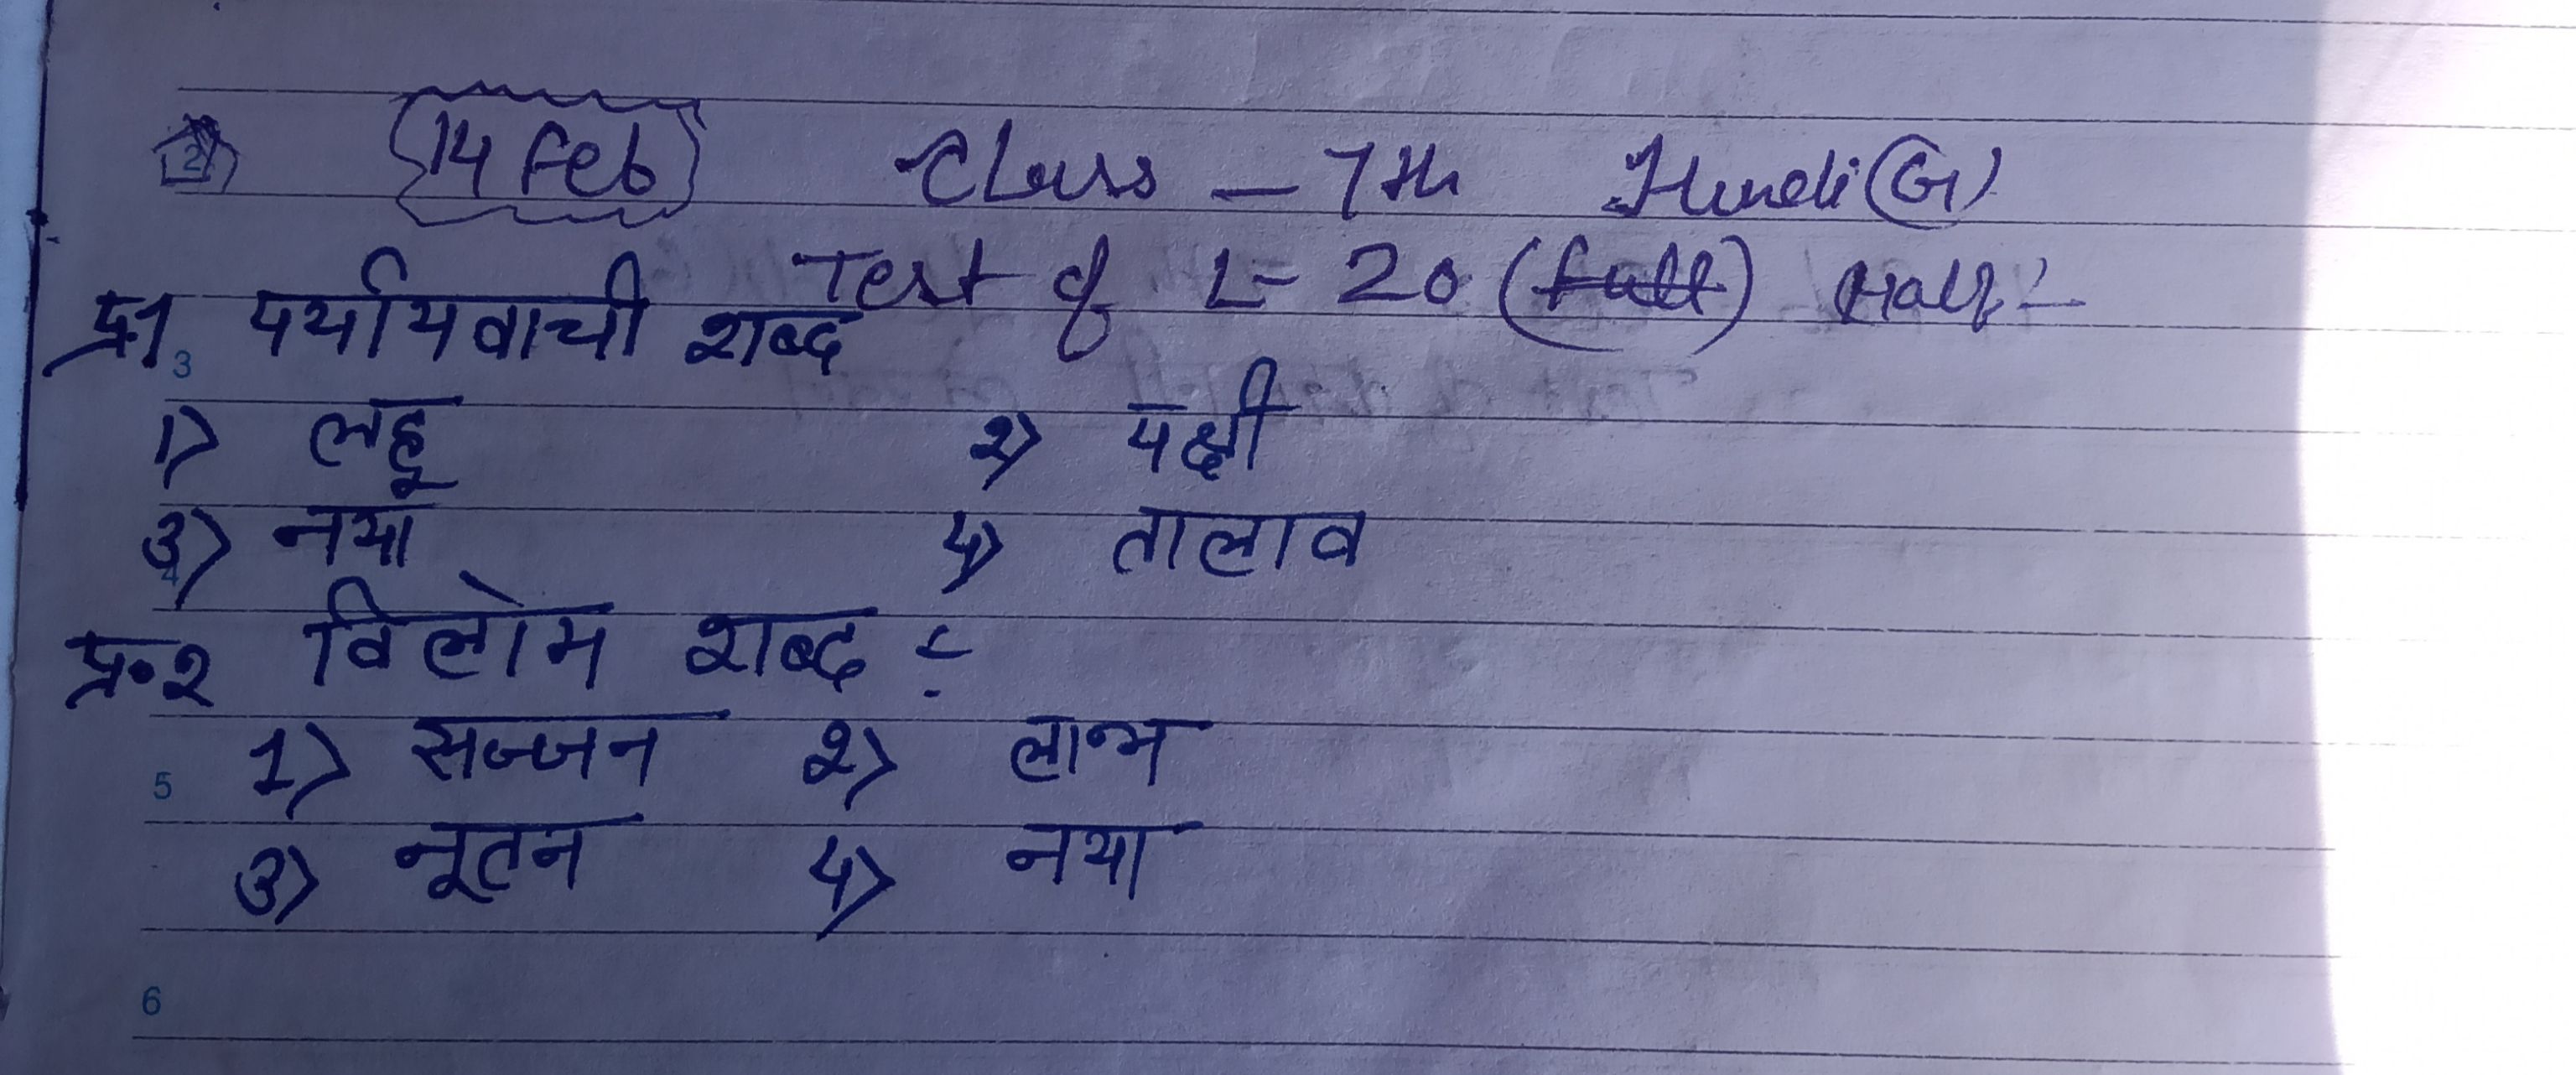 14 Feb Class - 7th Hindi (G)
Test of L- 20 (full) Half :-
प्र1 पर्यायवाची शब्द
3
1) लहू २) पक्षी
3) नया 4) तालाव
4
प्र॰२ विलोम शब्द :-
1) सज्जन २) लाभ
5
3) नूतन 4) नया
6